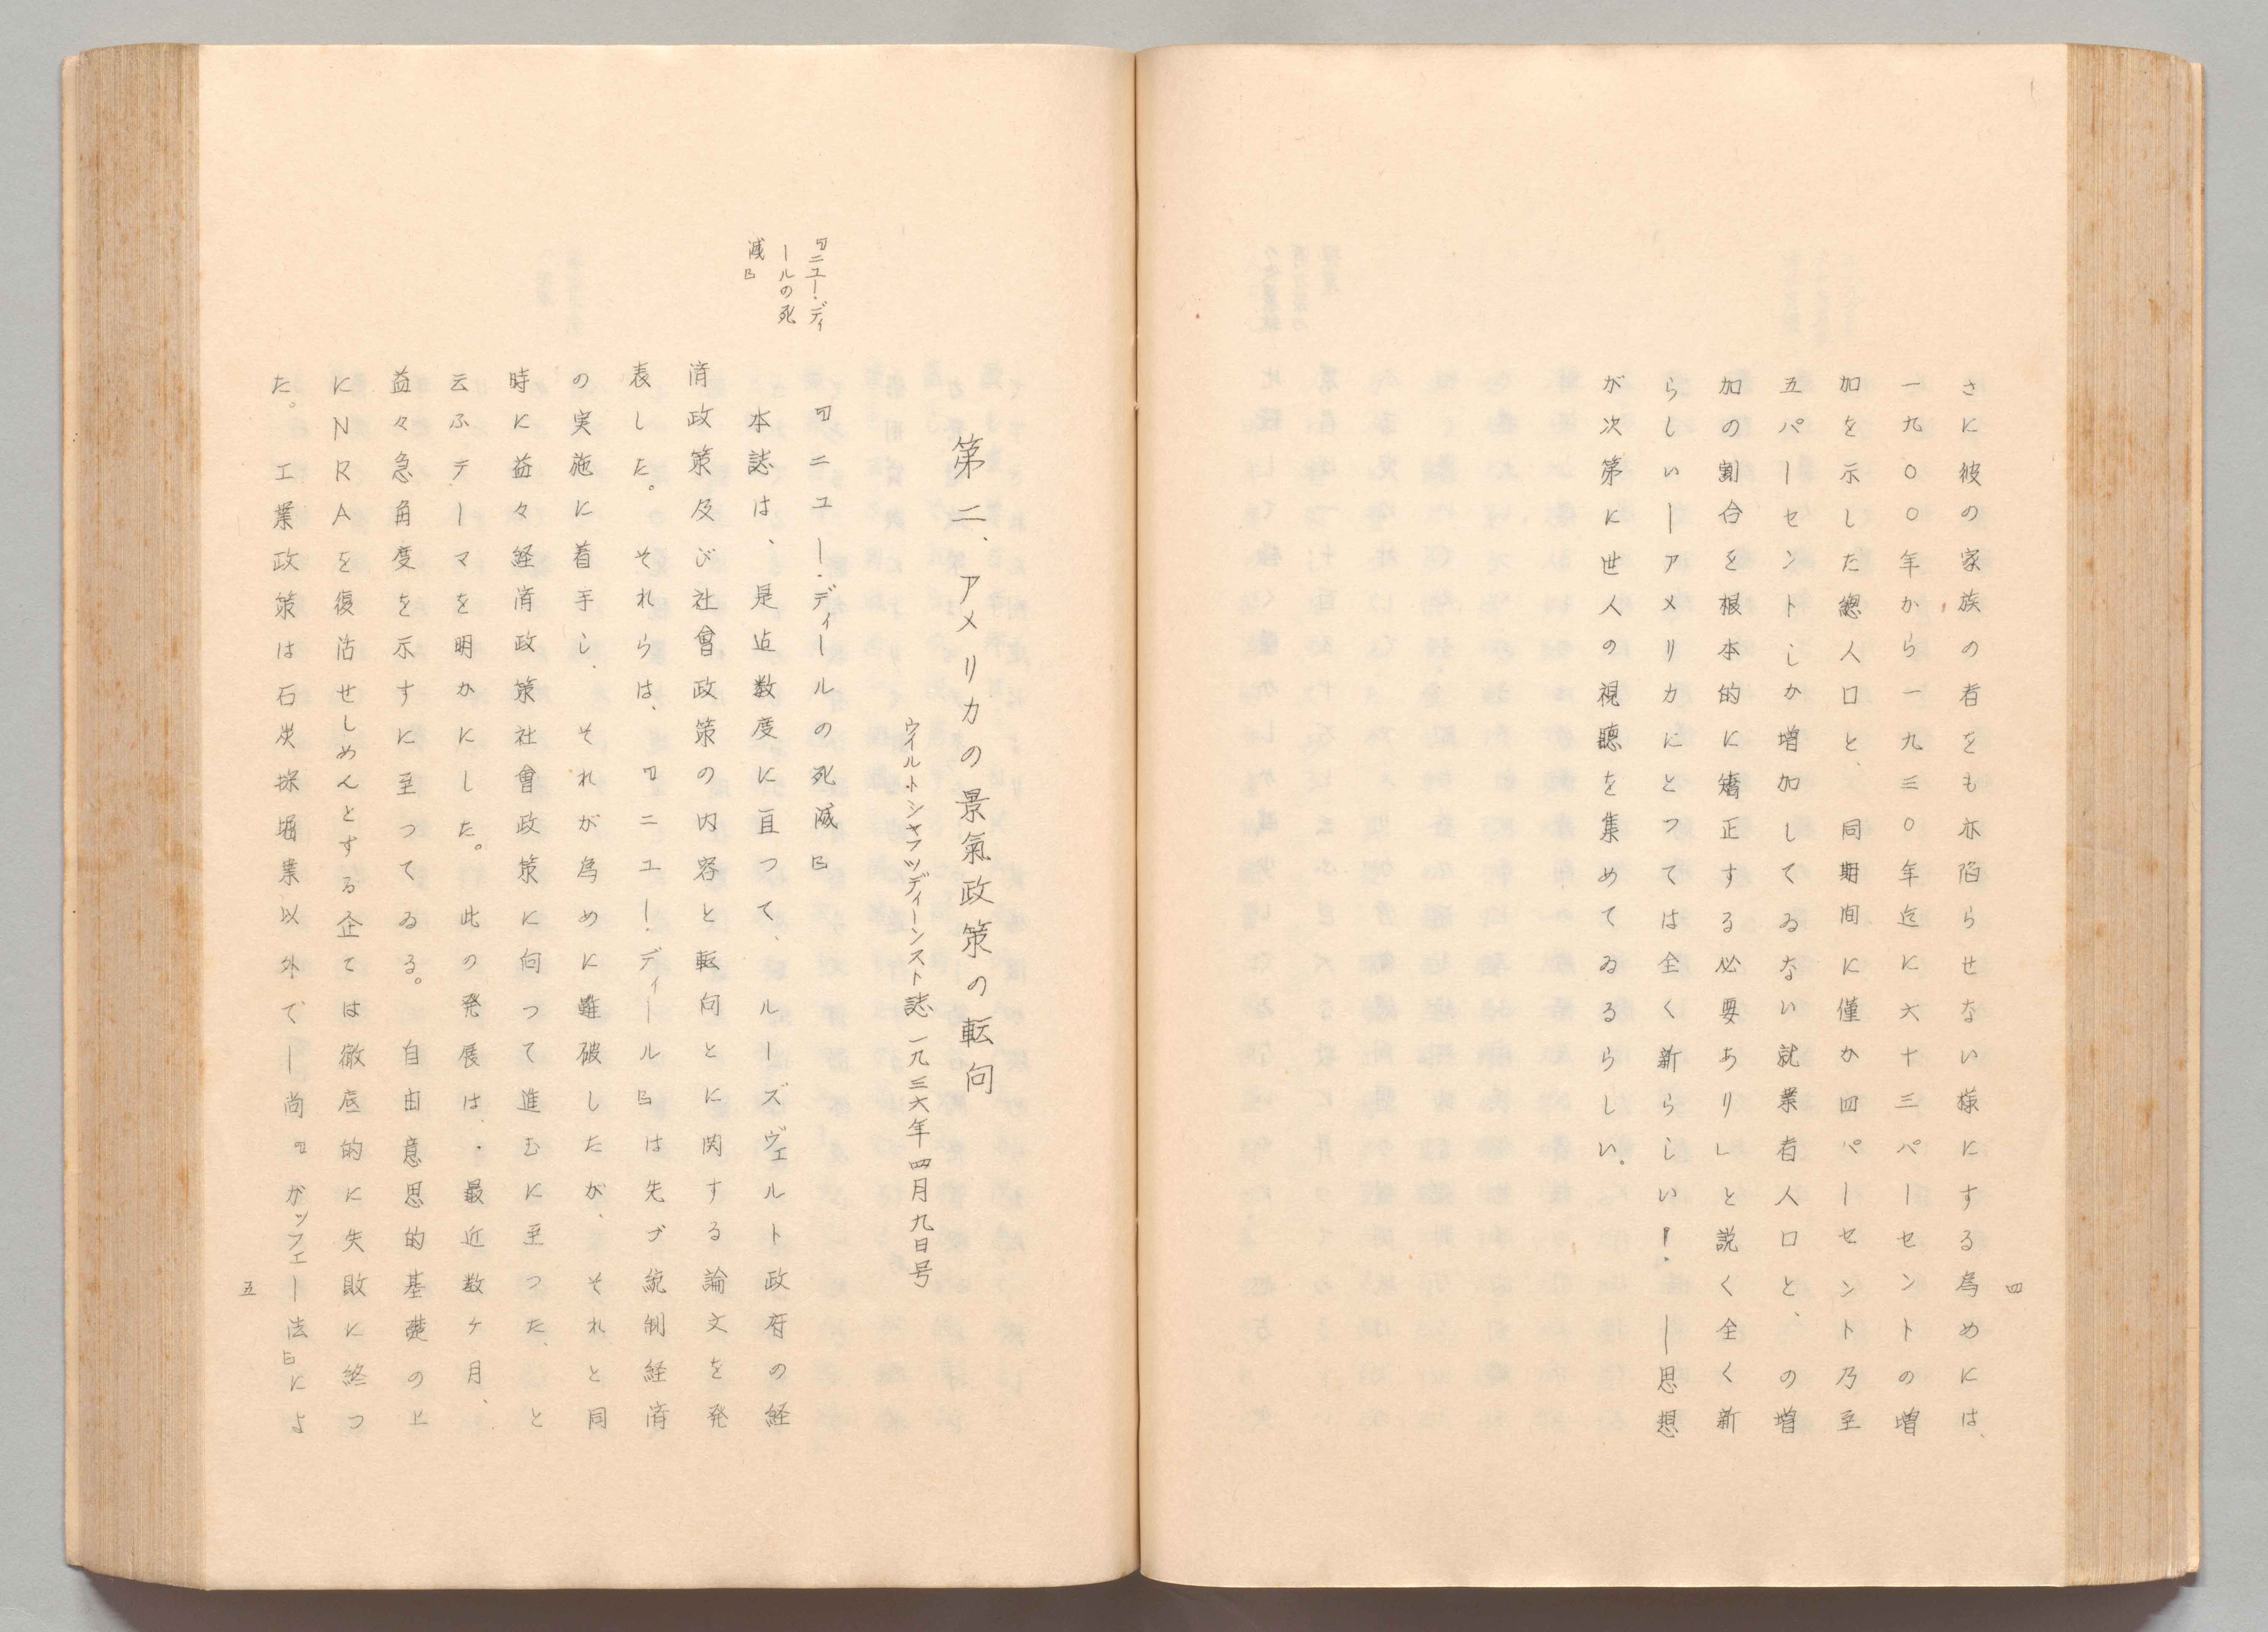 四
さに彼の家族の者をも亦陷らせない様にする為めには、
一九〇〇年から一九三〇年迄に六十三パーセントの増
加を示した總人口と、同期間に僅か四パーセント乃至
五パーセントしか増加してゐない就業者人口と、の増
加の割合を根本的に矯正する必要あり」と説く全く新
らしい―アメリカにとつては全く新らしい！―思想
が次第に世人の視聽を集めてゐるらしい。
第二、アメリカの景氣政策の転向
ウイルトシャフツディーンスト誌 一九三六年四月九日号
『ニユー・ディ
ールの死
滅』
『ニユー・ディールの死滅』
本誌は、是迄数度に亘つて、ルーズヴェルト政府の経
済政策及び社會政策の内容と転向とに関する論文を発
表した。それらは、『ニユー・ディール』は先づ統制経済
の実施に着手し、それが為めに難破したが、それと同
時に益々経済政策社會政策に向つて進むに至つた、と
云ふテーマを明かにした。此の発展は、・最近数ヶ月、
益々急角度を示すに至つてゐる。自由意思的基礎の上
にNRAを復活せしめんとする企ては徹底的に失敗に終つ
た。工業政策は石炭採堀業以外で―尚『ガッフェー法』によ
五